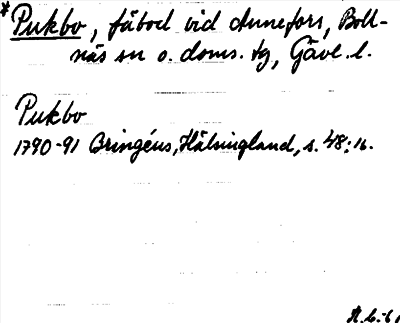 *Pukbo, fäbod vid Annefors, Boll-
näs sn o. doms. tg, Gävl. l.
Pukbo
1790-91 Bringéus, Hälsingland, s. 48; 16.